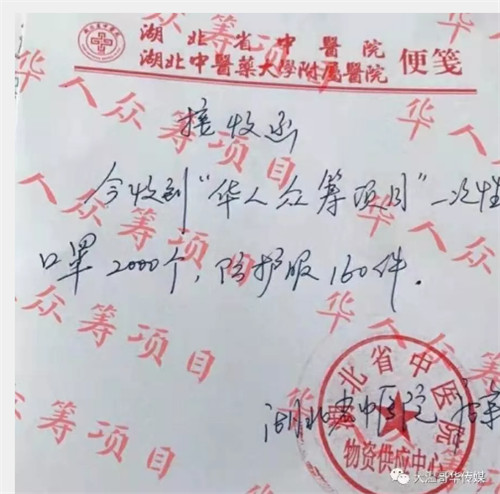 湖北省中醫院
湖北中醫藥大學附属醫院 便笺
接收函
今收到“华人众筹项目”一次性
口罩2000个，防护服160件.
湖北省中医院
湖北省中医院
物资供应中心
华人众筹项目
华人众筹项目
华人众筹项目
大温哥华传媒